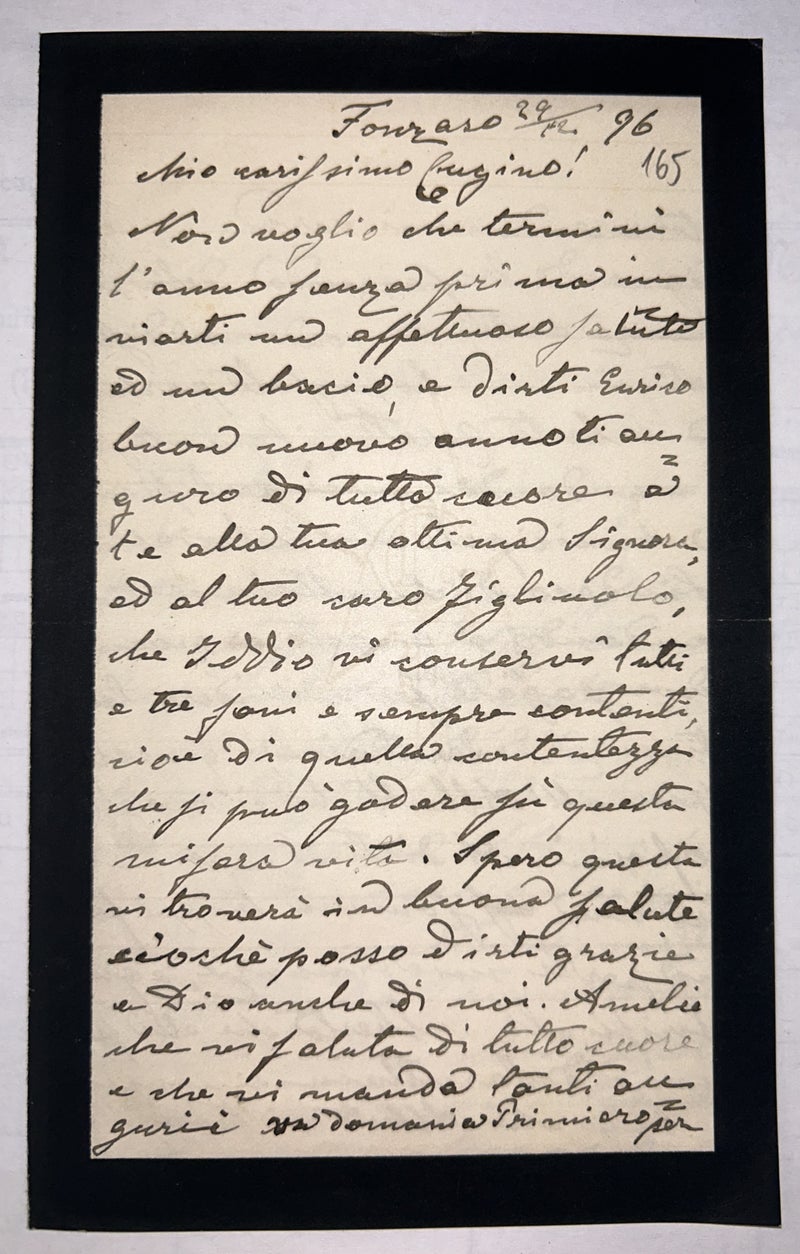 Fonzaso 29/12 96
165
Mio carissimo Cugino!
Non voglio che termini
l'anno senza prima in
viarti un affettuoso saluto
ed un bacio, e dirti Enrico
buon nuovo anno ti au=
guro di tutto cuore a
te alla tua ottima Signora,
ed al tuo caro Figliuolo,
che Iddio vi conservi tutti
e tre sani e sempre contenti,
cioè di quella contentezza
che si può godere in questa
misera vita. Spero questa
vi troverà in buona salute
ciochè posso dirti grazie
a Dio anche di noi. Amelie
che vi saluta di tutto cuore
e che vi manda tanti au=
gurii va domani a Primiero per